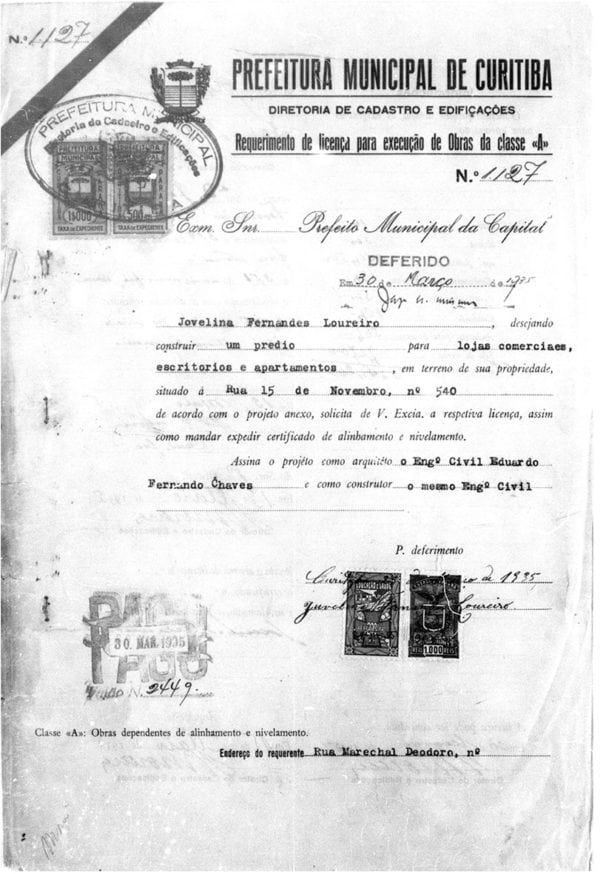 N.º 1127
PREFEITURA MUNICIPAL DE CURITIBA
DIRETORIA DE CADASTRO E EDIFICAÇÕES
Requerimento de licença para execução de Obras da classe «A»
N.º 1127
PREFEITURA MUNICIPAL
Diretoria do Cadastro e Edificações
PREFEITURA MUNICIPAL
1$000 500
TAXA DE EXPEDIENTE TAXA DE EXPEDIENTE
Exm. Snr. Prefeito Municipal da Capital
DEFERIDO
Em 30 de Março de 1935
Jovelina Fernandes Loureiro, desejando
construir um predio para lojas comerciaes,
escritorios e apartamentos, em terreno de sua propriedade,
situado á Rua 15 de Novembro, nº 540
de acordo com o projeto anexo, solicita de V. Excia. a respetiva licença, assim
como mandar expedir certificado de alinhamento e nivelamento.
Assina o projéto como arquitéto o Engº Civil Eduardo
Fernando Chaves e como construtor o mesmo Engº Civil
P. deferimento
de 1935
Loureiro
1.000
30. MAR. 1935
N. 2449.
Classe «A»: Obras dependentes de alinhamento e nivelamento.
Endereço do requerente Rua Marechal Deodoro, nº